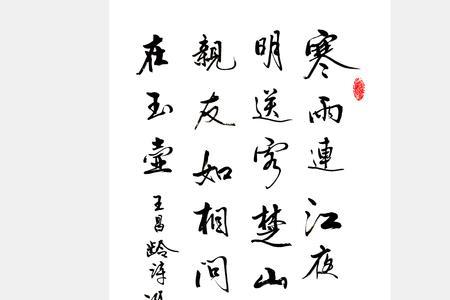 寒雨連江夜
明送客楚山
親友如相問
在玉壺
王昌齡詩